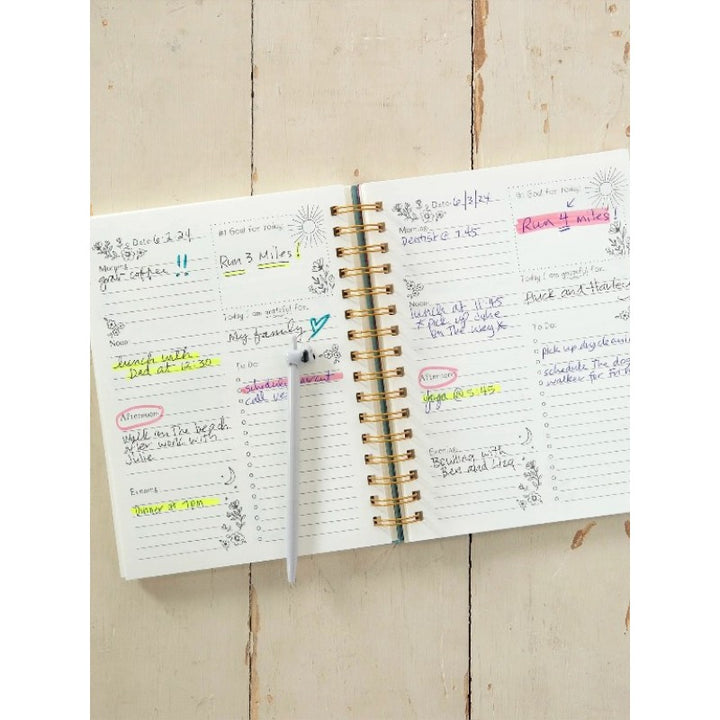 Date: 6.2.24
Morning
grab coffee !!
Noon
lunch with
Dad at 12:30
Afternoon
Walk on the beach
after work with
Julie
Evening
Dinner at 7pm
#1 Goal for Today:
Run 3 Miles!
Today I am grateful for:
My family
To Do:
schedule
call
Date: 6/3/24
Morning
Dentist @ 7:45
Noon
lunch at 11:45
* pick up Julie
on the way *
Afternoon
Yoga @ 5:45
Evening
Bowling with
Ben and Lisa
#1 Goal for Today:
Run 4 miles!
Today I am grateful for:
and
To Do:
pick up dry
schedule the dog
walker for